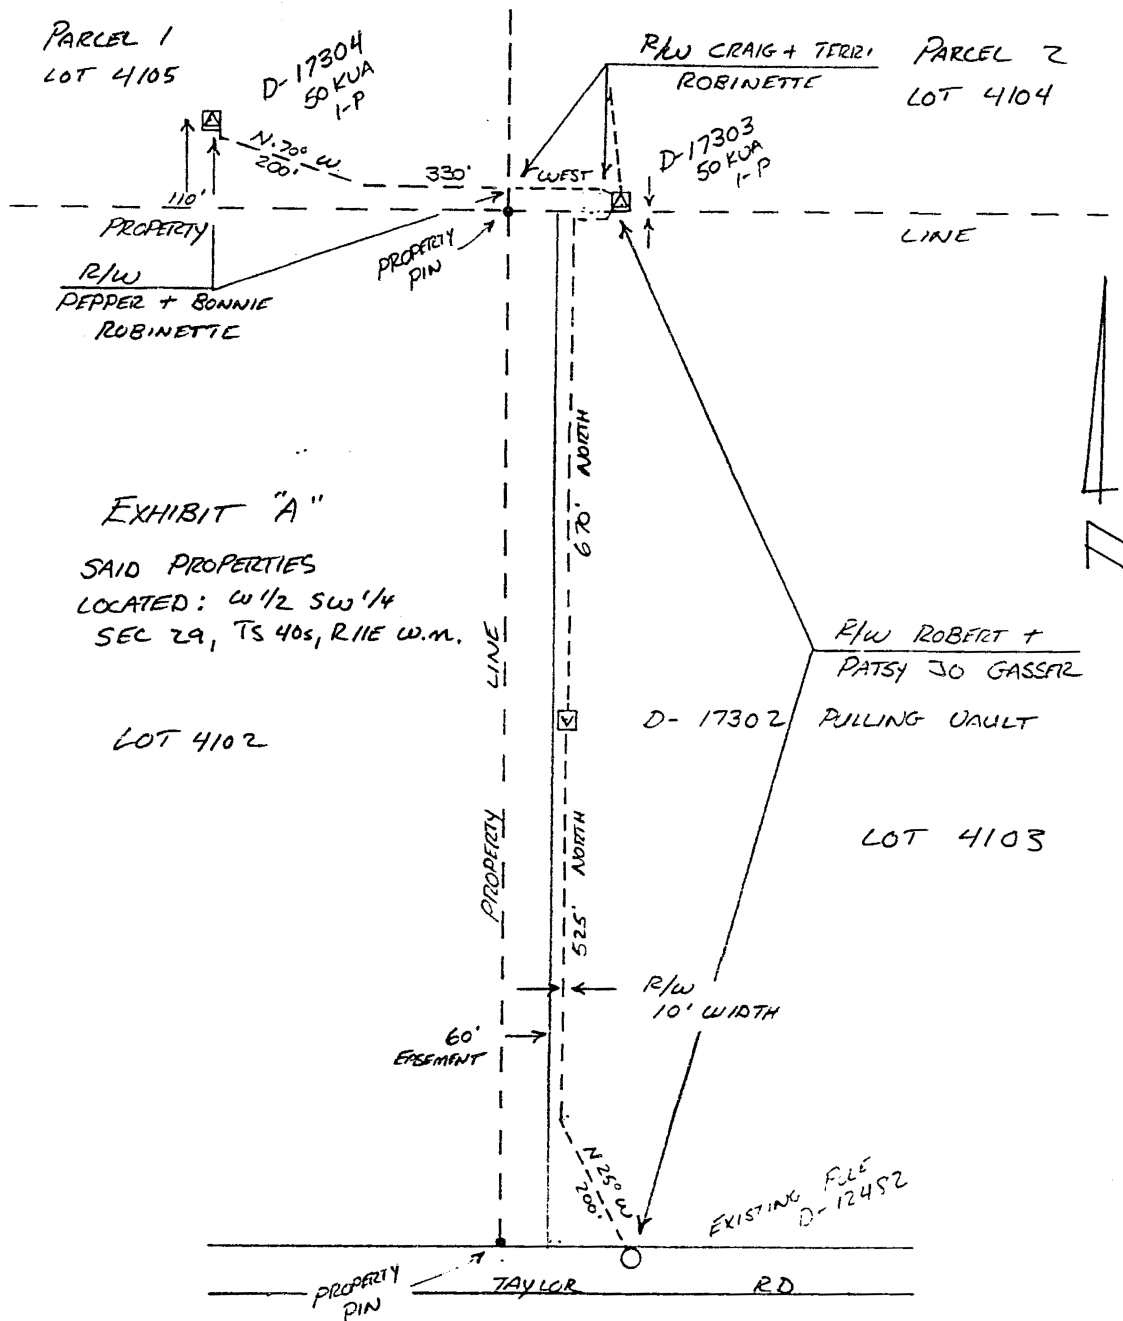 PARCEL 1
LOT 4105
D-17304
50 KVA
1-P
R/W CRAIG + TERRI
ROBINETTE
PARCEL 2
LOT 4104
D-17303
50 KVA
1-P
N. 70° W
200'
330'
WEST
110'
PROPERTY
LINE
PROPERTY
PIN
R/W
PEPPER + BONNIE
ROBINETTE
670' NORTH
EXHIBIT "A"
SAID PROPERTIES
LOCATED: W 1/2 SW 1/4
SEC 29, TS 40S, R11E W.M.
LINE
R/W ROBERT +
PATSY JO GASSER
D-17302 PULLING VAULT
LOT 4102
PROPERTY
LOT 4103
525' NORTH
R/W
10' WIDTH
60'
EASEMENT
N 25° W
200'
EXISTING POLE
D-12452
PROPERTY
PIN
TAYLOR RD